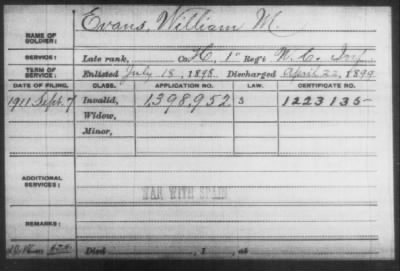 Evans, William M.
NAME OF SOLDIER:
SERVICE: Late rank, Co. H, 1" Reg't N. C. Inf.
TERM OF SERVICE: Enlisted July 18, 1898. Discharged April 22, 1899
DATE OF FILING. CLASS. APPLICATION NO. LAW. CERTIFICATE NO.
1911 Sept. 7 Invalid, 1,398,952 S 1223135
Widow,
Minor,
ADDITIONAL SERVICES:
WAR WITH SPAIN
REMARKS:
Died , 1 , at